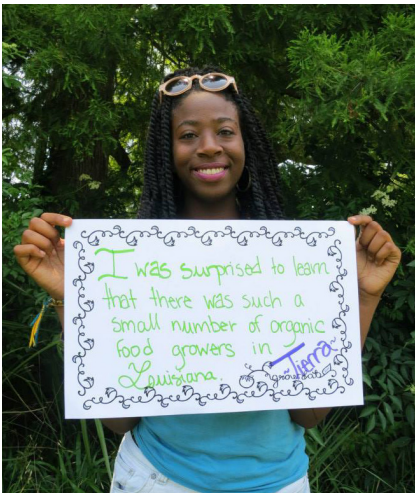 I was surprised to learn
that there was such a
small number of organic
food growers in
Louisiana.
~Tierra~